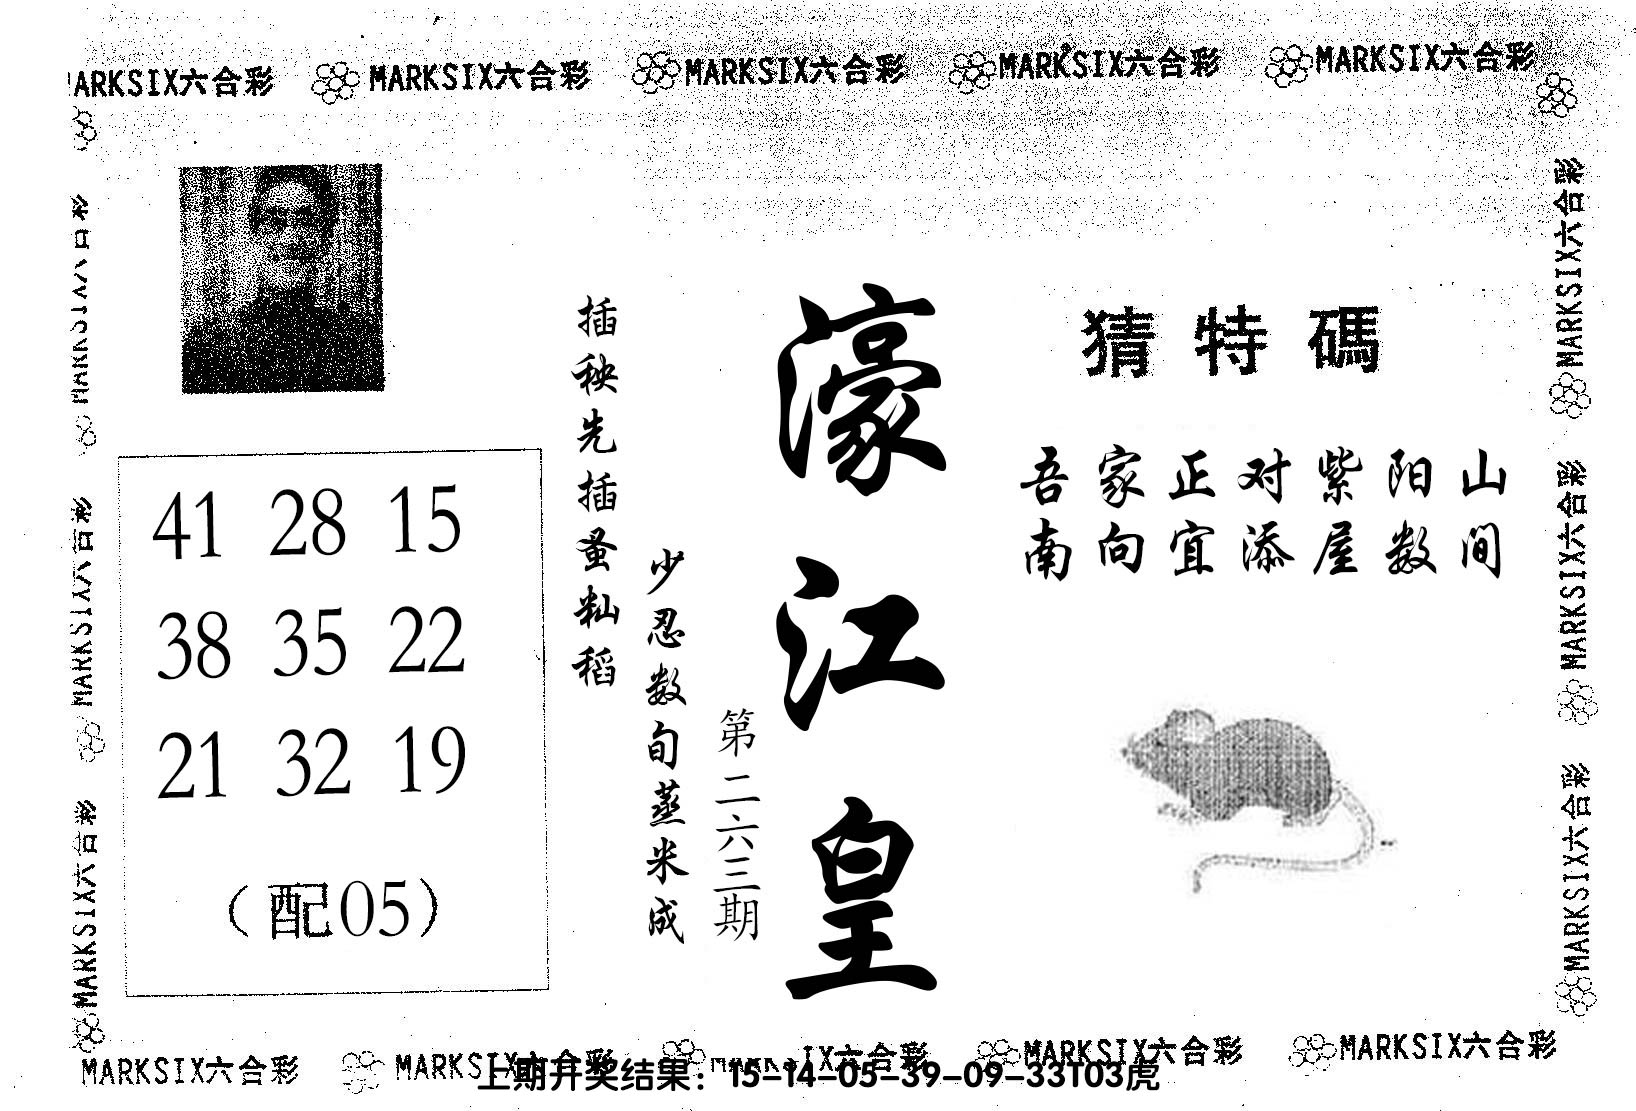 MARKSIX六合彩 MARKSIX六合彩 MARKSIX六合彩 MARKSIX六合彩 MARKSIX六合彩
猜特碼
吾家正对紫阳山
南向宜添屋数间
濠江皇
第二六三期
插秧先插蚤籼稻
少忍数旬蒸米成
41 28 15
38 35 22
21 32 19
（配05）
MARKSIX六合彩
MARKSIX六合彩
MARKSIX六合彩
MARKSIX六合彩
MARKSIX六合彩
MARKSIX六合彩
MARKSIX六合彩 MARKSIX六合彩 MARKSIX六合彩 MARKSIX六合彩 MARKSIX六合彩
上期开奖结果：15-14-05-39-09-33T03虎